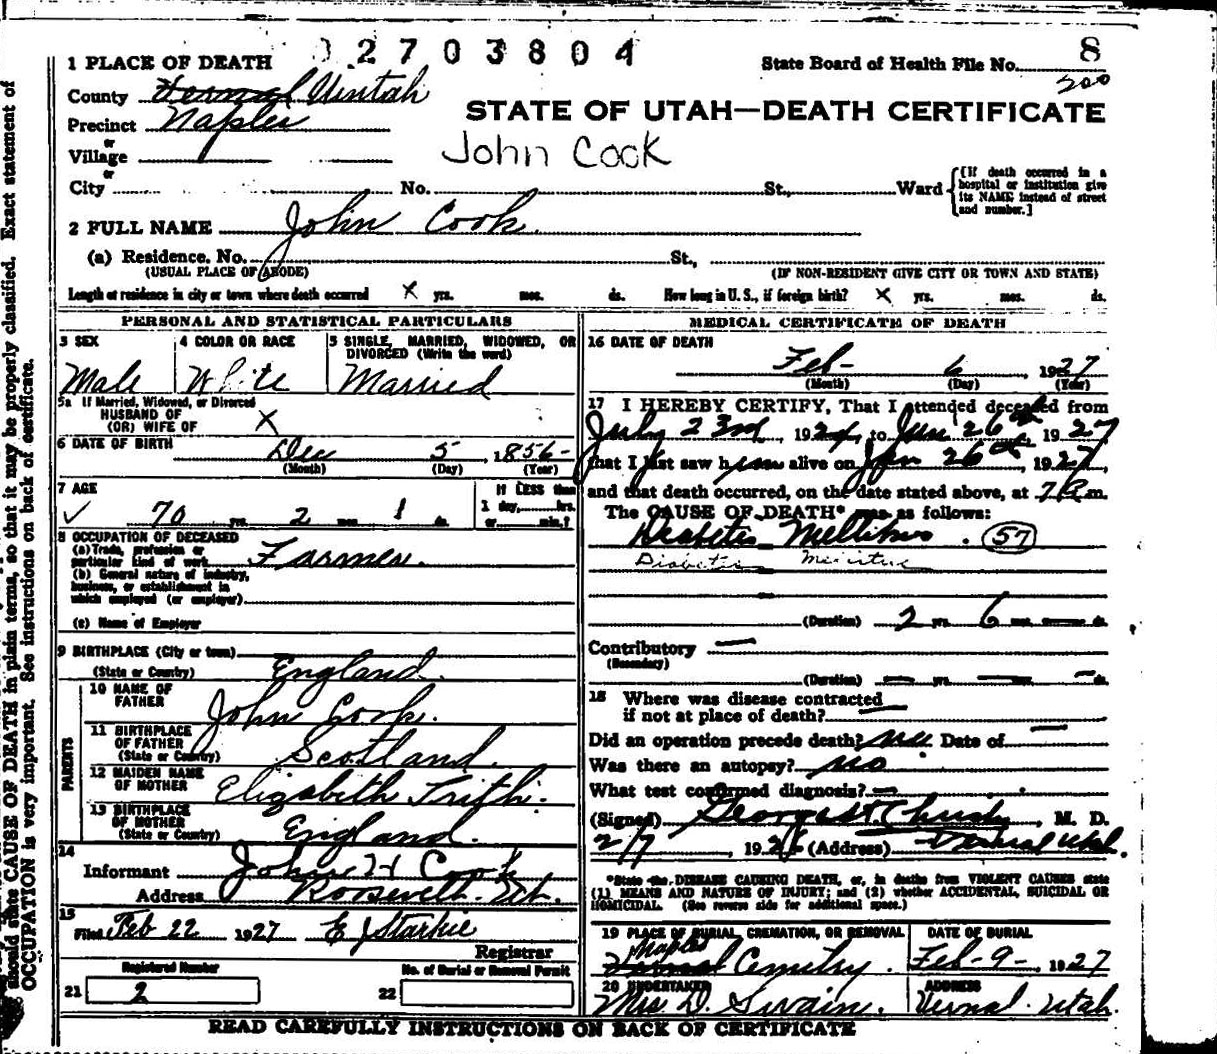 02703804
1 PLACE OF DEATH
State Board of Health File No. 8
200
County Vernal Uintah
STATE OF UTAH—DEATH CERTIFICATE
Precinct Naples
or
Village
John Cook
or
City No. St., Ward
[If death occurred in a hospital or institution give its NAME instead of street and number.]
2 FULL NAME John Cook.
(a) Residence. No. St.,
(USUAL PLACE OF ABODE) (IF NON-RESIDENT GIVE CITY OR TOWN AND STATE)
Length of residence in city or town where death occurred x yrs. mos. ds. How long in U. S., if foreign birth? x yrs. mos. ds.
PERSONAL AND STATISTICAL PARTICULARS
3 SEX 4 COLOR OR RACE 5 SINGLE, MARRIED, WIDOWED, OR
DIVORCED (Write the word)
Male White Married
5a If Married, Widowed, or Divorced
HUSBAND OF
(OR) WIFE OF X
6 DATE OF BIRTH Dec 5, 1856-
(Month) (Day) (Year)
7 AGE If LESS than
1 day, hrs.
✓ 70 yrs. 2 mos. 1 ds. or min.?
8 OCCUPATION OF DECEASED
(a) Trade, profession or
particular kind of work Farmer.
(b) General nature of industry,
business, or establishment in
which employed (or employer)
(c) Name of Employer
9 BIRTHPLACE (City or town)
(State or Country) England.
PARENTS
10 NAME OF
FATHER John Cook.
11 BIRTHPLACE
OF FATHER
(State or Country) Scotland.
12 MAIDEN NAME
OF MOTHER Elizabeth
13 BIRTHPLACE
OF MOTHER
(State or Country) England.
14
Informant John H Cook
Address Roosevelt, Ut.
15
Filed Feb 22 1927 E J Starkie
Registrar
Registered Number No. of Burial or Removal Permit
21 2 22
MEDICAL CERTIFICATE OF DEATH
16 DATE OF DEATH
Feb- 6 1927
(Month) (Day) (Year)
17 I HEREBY CERTIFY, That I attended deceased from
July 23rd, 1924, to Jan 26th, 1927,
that I last saw him alive on Jan 26th, 1927,
and that death occurred, on the date stated above, at 7 A m.
The CAUSE OF DEATH* was as follows:
Diabetes Mellitus. 57
Diabetes
(Duration) 2 yrs. 6 mos. ds.
Contributory —
(Secondary)
(Duration) — yrs. — mos. — ds.
18 Where was disease contracted
if not at place of death? —
Did an operation precede death? no Date of —
Was there an autopsy? no
What test confirmed diagnosis? —
(Signed) , M. D.
2/7, 192 (Address) Vernal Utah.
*State the DISEASE CAUSING DEATH, or, in deaths from VIOLENT CAUSES state
(1) MEANS AND NATURE OF INJURY; and (2) whether ACCIDENTAL, SUICIDAL OR
HOMICIDAL. (See reverse side for additional space.)
19 PLACE OF BURIAL, CREMATION, OR REMOVAL DATE OF BURIAL
Naples
Vernal Cemetry. Feb-9-, 1927
20 UNDERTAKER ADDRESS
Mrs D. Swain. Vernal Utah.
READ CAREFULLY INSTRUCTIONS ON BACK OF CERTIFICATE
should state CAUSE OF DEATH in plain terms, so that it may be properly classified. Exact statement of
OCCUPATION is very important. See instructions on back of certificate.